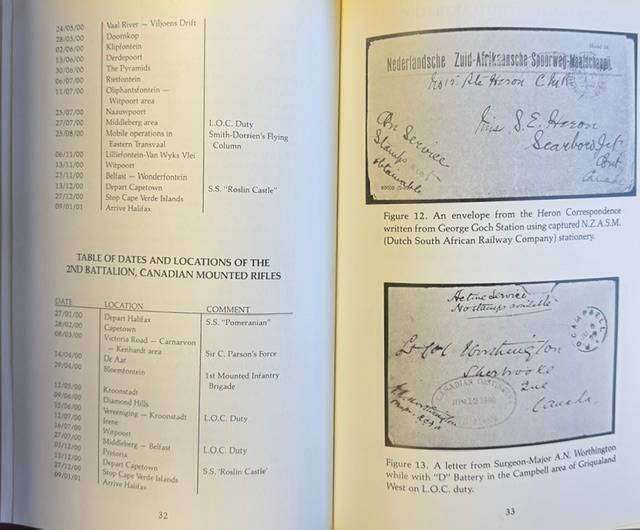 24/05/00 Vaal River — Viljoens Drift
28/05/00 Doornkop
02/06/00 Klipfontein
13/06/00 Derdepoort
30/06/00 The Pyramids
06/07/00 Rietfontein
11/07/00 Oliphantsfontein —
Witpoort area
25/07/00 Naauwpoort
27/07/00 Middleberg area L.O.C. Duty
25/08/00 Mobile operations in Smith-Dorrien's Flying
Eastern Transvaal Column
06/11/00 Lilliefontein-Van Wyks Vlei
13/11/00 Witpoort
23/11/00 Belfast — Wonderfontein
13/12/00 Depart Capetown S.S. "Roslin Castle"
27/12/00 Stop Cape Verde Islands
09/01/01 Arrive Halifax
TABLE OF DATES AND LOCATIONS OF THE
2ND BATTALION, CANADIAN MOUNTED RIFLES
DATE LOCATION COMMENT
27/01/00 Depart Halifax S.S. "Pomeranian"
28/02/00 Capetown
08/03/00 Victoria Road — Carnarvon
— Kenhardt area Sir C. Parson's Force
De Aar
Bloemfontein 1st Mounted Infantry
Brigade
Kroonstadt
Diamond Hills
Vereeniging — Kroonstadt L.O.C. Duty
Irene
Witpoort
Middleberg — Belfast L.O.C. Duty
Pretoria
13/12/00 Depart Capetown S.S. 'Roslin Castle'
27/12/00 Stop Cape Verde Islands
09/01/01 Arrive Halifax
32
Nederlandsche Zuid-Afrikaansche Spoorweg-Maatschappij.
Pte Heron C.M.R.
Miss S. E. Heron
Scarboro Jct
Ont
Canada
On Service
Stamps not
obtainable
Figure 12. An envelope from the Heron Correspondence
written from George Goch Station using captured N.Z.A.S.M.
(Dutch South African Railway Company) stationery.
Active Service
No stamps available
CAMPBELL
Lt Col Worthington
Sherbrooke
Que
Canada
CANADIAN
Figure 13. A letter from Surgeon-Major A.N. Worthington
while with "D" Battery in the Campbell area of Griqualand
West on L.O.C. duty.
33